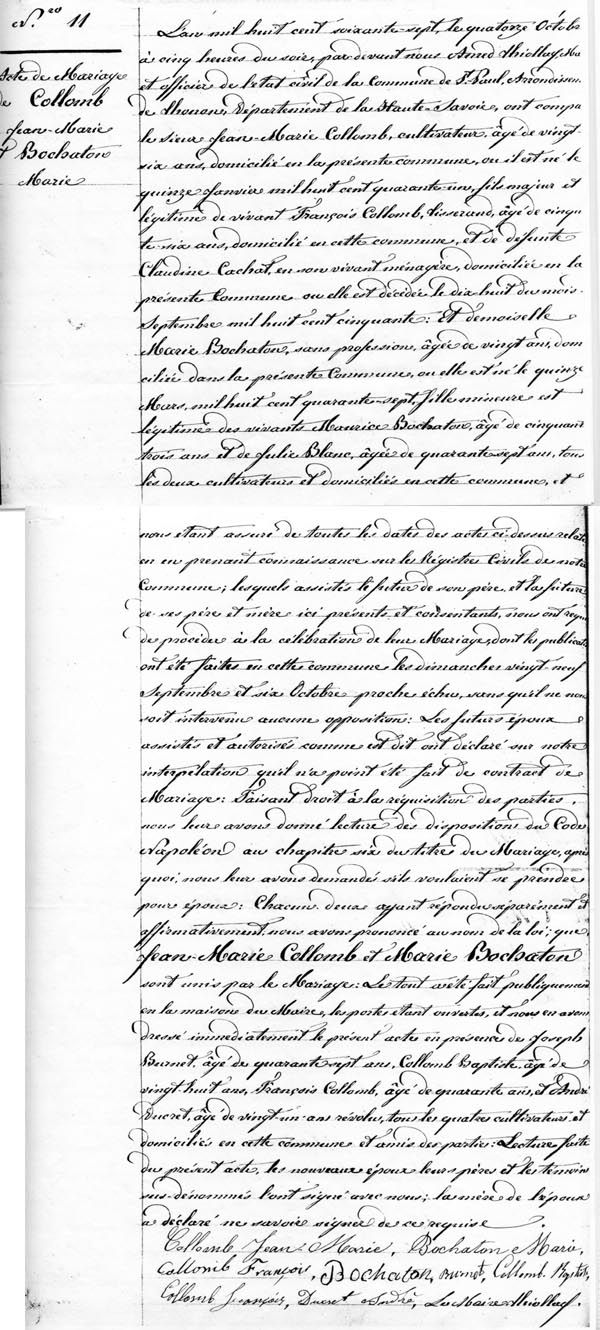 N.ro 11
Acte de Mariage
de Collomb
Jean-Marie
et Bochaton
Marie
L'an mil huit cent soixante-sept, le quatorze Octobre
à cinq heures du soir, par devant nous Amed Thiollay, Ma
et officier de l'etat civil de la Commune de St. Paul, Arrondissem
de Thonon, Département de la Haute-Savoie, ont compa
le sieur Jean-Marie Collomb, cultivateur, âgé de vingt-
six ans, domicilié en la présente commune, ou il est né le
quinze Janvier mil huit cent quarante-un, fils majeur et
légitime de vivant François Collomb, tisserand, âgé de cinqu
te-six ans, domicilié en cette commune, et de défunte
Claudine Cachat, en son vivant ménagère, domiciliée en la
présente Commune ou elle est décédée le dix huit du mois
Septembre mil huit cent cinquante: Et demoiselle
Marie Bochaton, sans profession, âgée de vingt ans, dom
ciliée dans la présente Commune, ou elle est né le quinze
Mars, mil huit cent quarante-sept, fille mineure est
légitime des vivants Maurice Bochaton, âgé de cinquant
trois ans et de Julie Blanc, âgée de quarante-sept ans, tous
les deux cultivateurs et domiciliés en cette commune, et
nous etant assuré de toutes les dates des actes ci-dessus relat
en en prenant connaissance sur les Régistres Civils de notre
Commune; lesquels assistés le futur de son père, et la future
de ses père et mère ici présents et consentants, nous ont requ
de procéder à la célébration de leur Mariage, dont les publicat
ont été faites en cette commune les dimanches vingt-neuf
Septembre et six Octobre proche échu, sans qu'il ne nous
soit intervenu aucune opposition: Les futurs époux
assistés et autorisés comme est dit ont déclaré sur notre
interpelation qu'il n'a point été fait de contract de
Mariage: Faisant droit à la réquisition des parties,
nous leur avons donné lecture des dispositions du Code
Napoléon au chapitre six du titre du Mariage, après
quoi, nous leur avons demandé s'ils voulaient se prendre
pour époux: Chacun deux ayant répondu séparément et
affirmativement, nous avons prononcé au nom de la loi; que
Jean-Marie Collomb et Marie Bochaton
sont unis par le Mariage: Le tout a été fait publiquement
en la maison du Maire, les portes étant ouvertes, et nous en avon
dressé immédiatement le présent acte en présence de Joseph
Burnet, âgé de quarante sept ans, Collomb Baptiste, âgé de
vingt-huit ans, François Collomb, âgé de quarante ans, et André
Ducret, âgé de vingt-un-ans révolu, tous les quatres cultivateurs et
domiciliés en cette commune et amis des partie: Lecture faite
du présent acte, les nouveaux époux leurs pères et les témoins
sus-dénommés l'ont signé avec nous; la mère de l'époux
a déclaré ne savoire signer de ce requise.
Collomb Jean-Marie, Bochaton Marie,
Collomb François, Bochaton, Burnet, Collomb Baptiste,
Collomb François, Ducret André, Le Maire Thiollay.